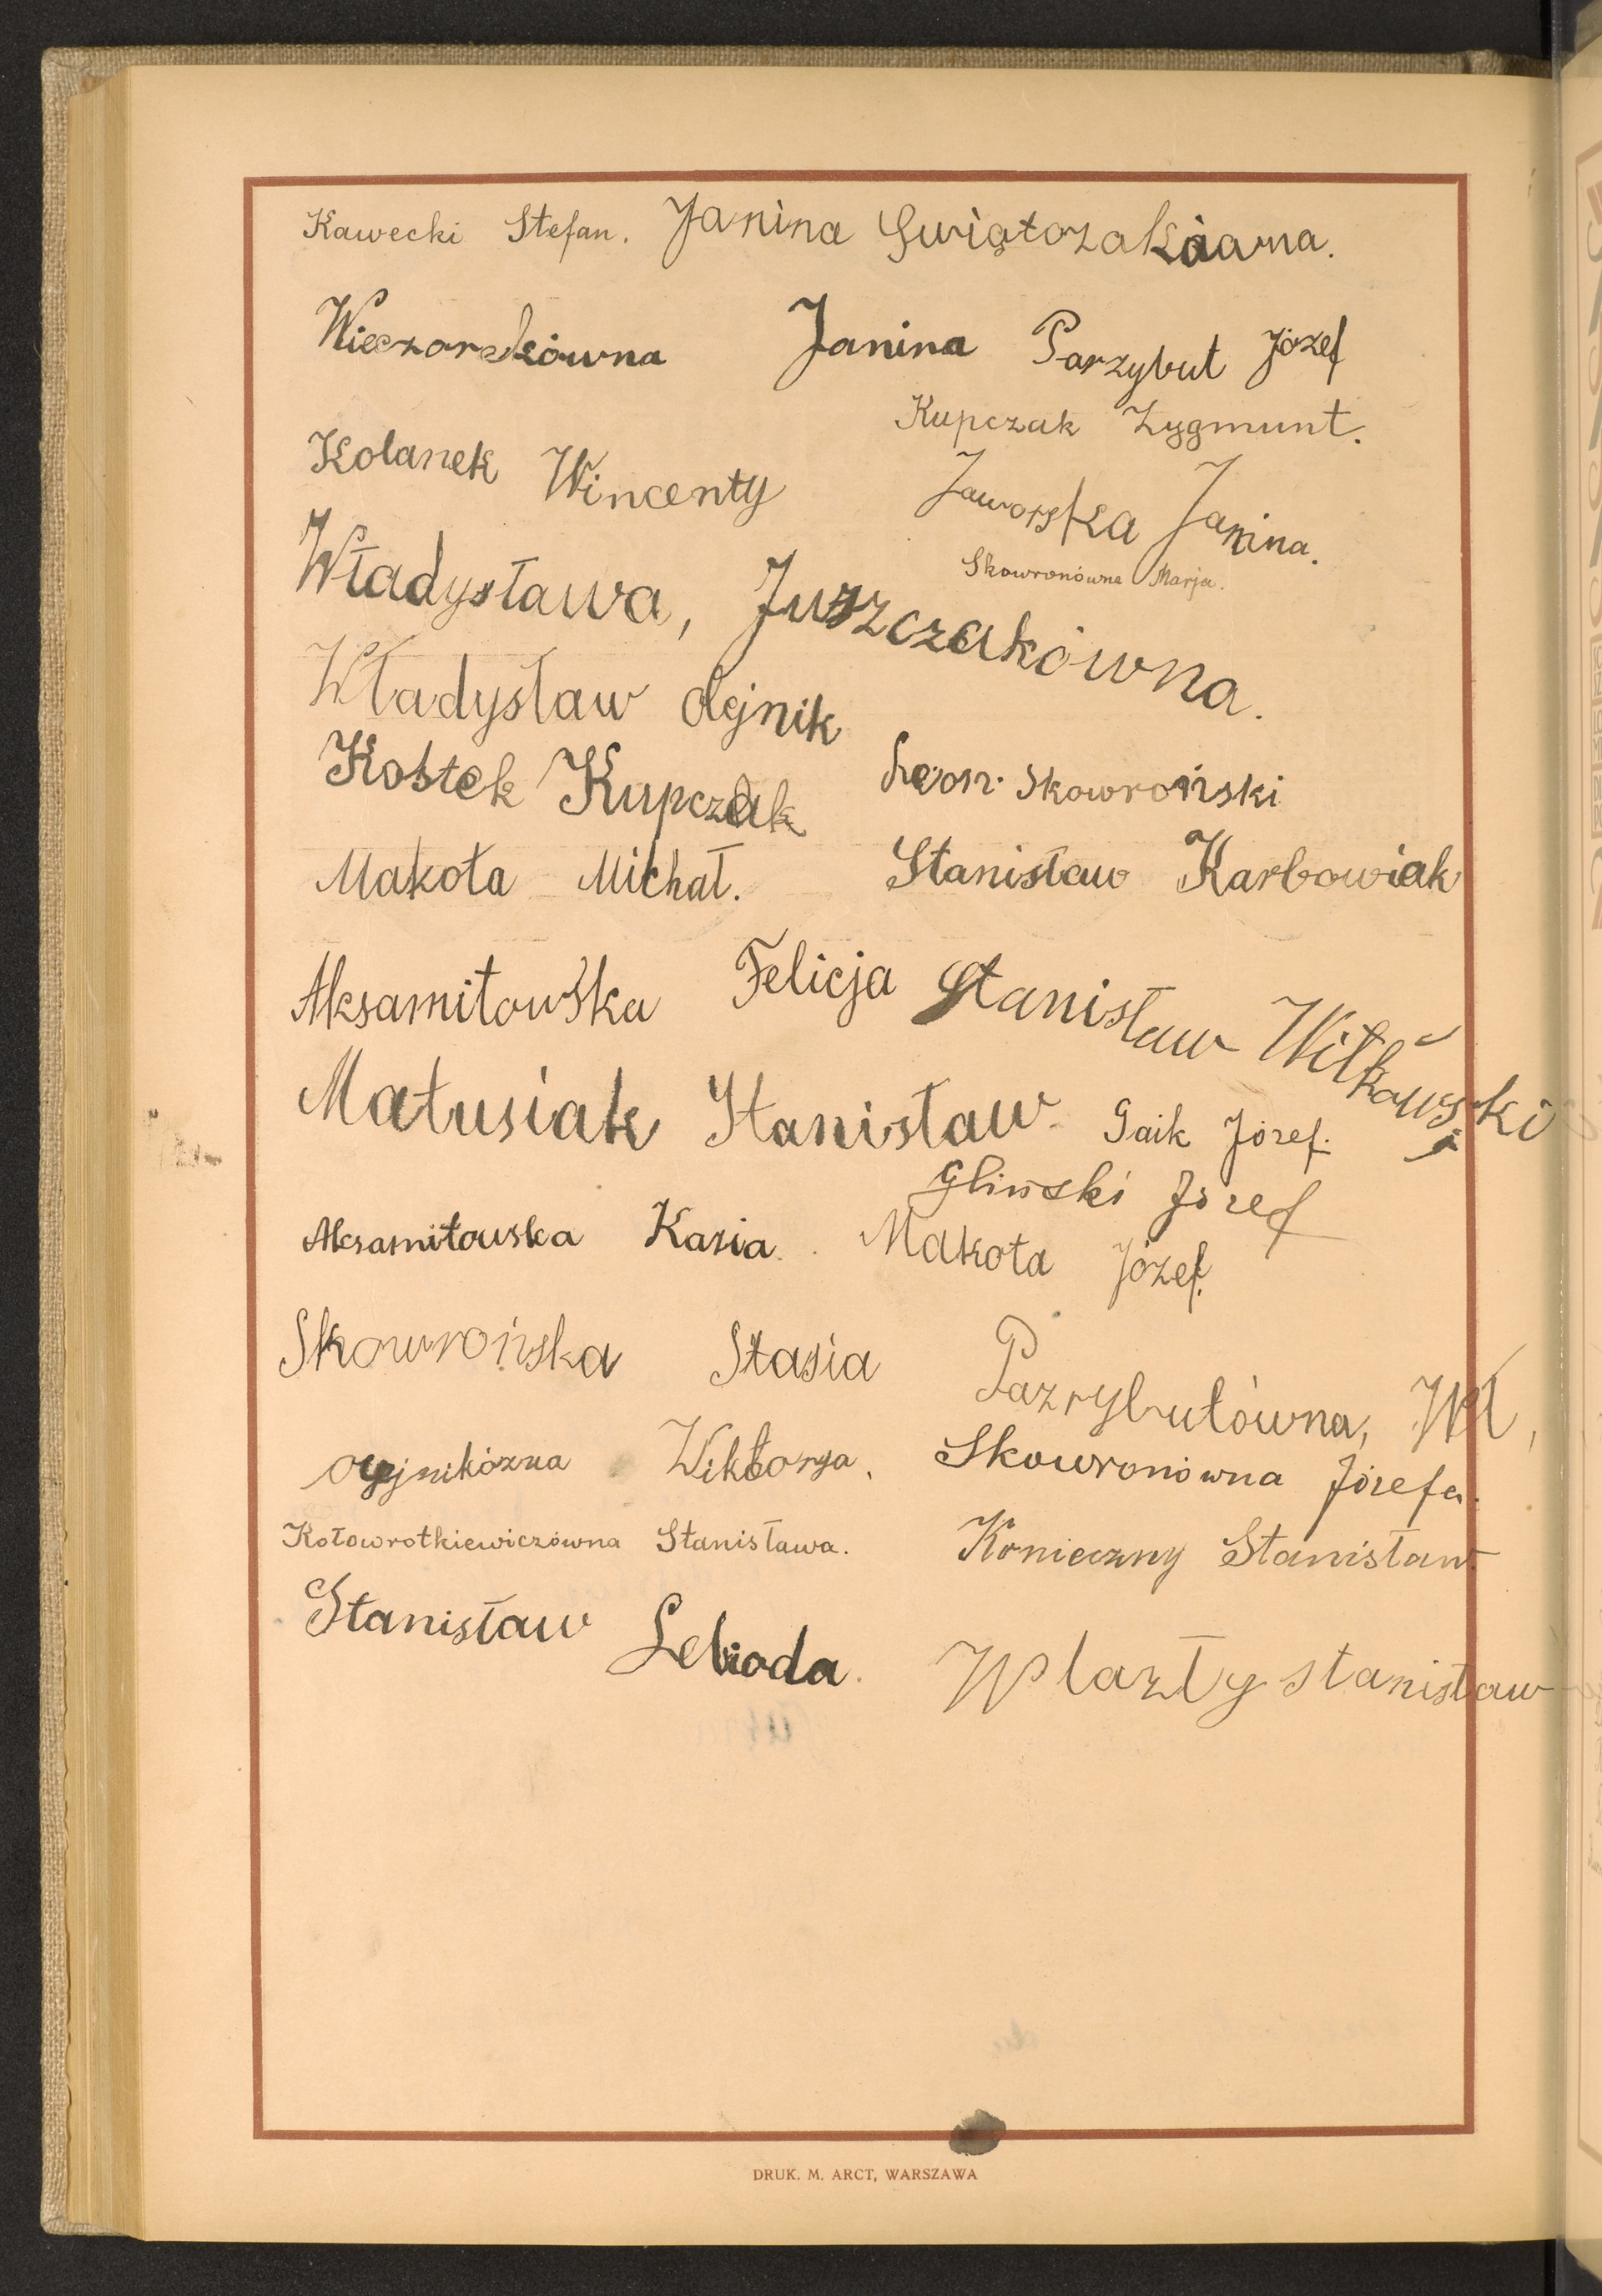 Kawecki Stefan. Janina Świątczakówna.
Wieczorekówna Janina Parzybut Józef
Kupczak Zygmunt.
Kolanek Wincenty Jaworska Janina.
Skowronówna Marja.
Władysława, Juszczakówna.
Władysław Olejnik
Kostek Kupczak Leon Skowroński
Makota Michał. Stanisław Karbowiak
Aksamitowska Felicja Stanisław Witkowski
Matusiak Stanisław Gaik Józef.
Gliński Józef
Aksamitowska Kazia. Makota Józef.
Skowrońska Stasia Pazrybutówna, Wł,
Wiktorya. Skowronówna Józefa.
Kołowrotkiewiczówna Stanisława. Konieczny Stanisław.
Stanisław Lebioda. Wlazły Stanisław
DRUK. M. ARCT, WARSZAWA